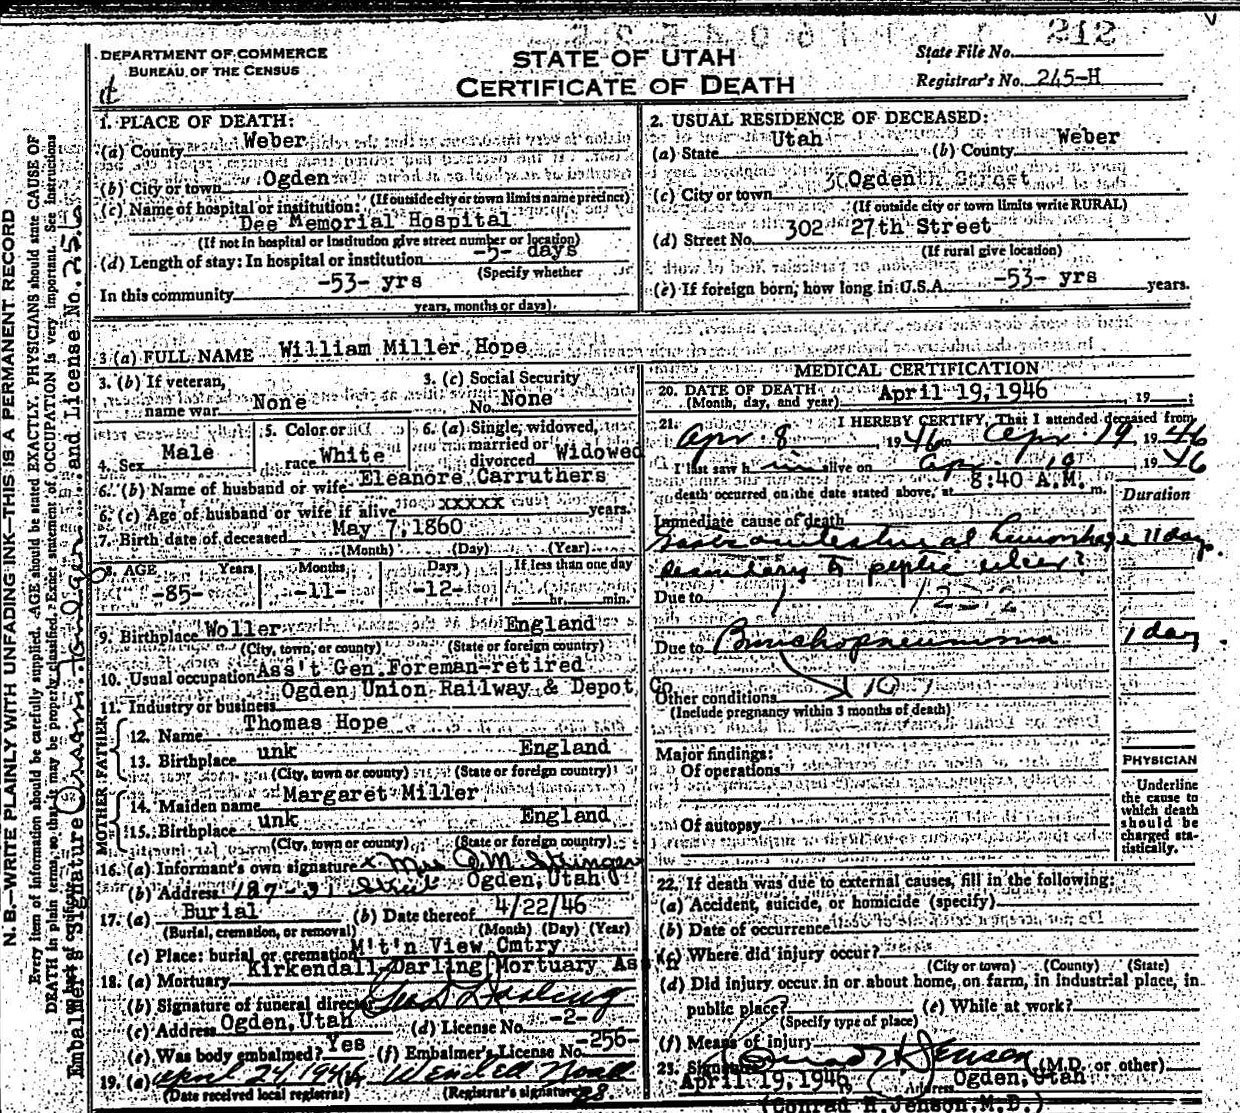 212
DEPARTMENT OF COMMERCE
BUREAU OF THE CENSUS
STATE OF UTAH
CERTIFICATE OF DEATH
State File No.
Registrar's No. 245-H
N. B.—WRITE PLAINLY WITH UNFADING INK—THIS IS A PERMANENT RECORD
Every item of information should be carefully supplied. AGE should be stated EXACTLY. PHYSICIANS should state CAUSE OF
DEATH in plain terms, so that it may be properly classified. Exact statement of OCCUPATION is very important. See instructions
Embalmer's Signature and License No.
1. PLACE OF DEATH:
(a) County Weber
(b) City or town Ogden
(If outside city or town limits name precinct)
(c) Name of hospital or institution:
Dee Memorial Hospital
(If not in hospital or institution give street number or location)
(d) Length of stay: In hospital or institution -5- days
(Specify whether
In this community -53- yrs
years, months or days).
2. USUAL RESIDENCE OF DECEASED:
(a) State Utah (b) County Weber
(c) City or town Ogden
(If outside city or town limits write RURAL)
(d) Street No. 302 27th Street
(If rural give location)
(e) If foreign born, how long in U.S.A. -53- yrs years.
3 (a) FULL NAME William Miller Hope
3. (b) If veteran,
name war None
3. (c) Social Security
No. None
4. Sex Male
5. Color or
race White
6. (a) Single, widowed,
married or
divorced Widowed
6. (b) Name of husband or wife Eleanore Carruthers
6. (c) Age of husband or wife if alive xxxxx years.
7. Birth date of deceased May 7, 1860
(Month) (Day) (Year)
8. AGE Years Months Days If less than one day
-85- -11- -12- hr. min.
9. Birthplace Woller England
(City, town, or county) (State or foreign country)
10. Usual occupation Ass't Gen. Foreman-retired
11. Industry or business Ogden Union Railway & Depot Co.
FATHER
12. Name Thomas Hope
13. Birthplace unk England
(City, town or county) (State or foreign country)
MOTHER
14. Maiden name Margaret Miller
15. Birthplace unk England
(City, town or county) (State or foreign country)
16. (a) Informant's own signature x Mrs J M Stringer
(b) Address 187-31 Street Ogden, Utah
17. (a) Burial (b) Date thereof 4/22/46
(Burial, cremation, or removal) (Month) (Day) (Year)
(c) Place: burial or cremation M't'n View Cmtry
18. (a) Mortuary Kirkendall Darling Mortuary
(b) Signature of funeral director Geo Darling
(c) Address Ogden, Utah (d) License No. -2-
(e) Was body embalmed? Yes (f) Embalmer's License No. -256-
19. (a) April 24, 1946 Wendell Noall
(Date received local registrar) (Registrar's signature)
MEDICAL CERTIFICATION
20. DATE OF DEATH April 19, 1946, 19
(Month, day, and year)
21. I HEREBY CERTIFY, That I attended deceased from
Apr. 8 1946 to Apr. 19, 1946
I last saw him alive on Apr. 19, 1946
death occurred on the date stated above, at 8:40 A.M. m.
Duration
Immediate cause of death
Gastro intestinal hemorrhage 11 day.
secondary to peptic ulcer?
Due to
Due to Bronchopneumonia 1 day.
Other conditions
(Include pregnancy within 3 months of death)
Major findings:
Of operations
Of autopsy
PHYSICIAN
Underline
the cause to
which death
should be
charged sta-
tistically.
22. If death was due to external causes, fill in the following:
(a) Accident, suicide, or homicide (specify)
(b) Date of occurrence
(c) Where did injury occur?
(City or town) (County) (State)
(d) Did injury occur in or about home, on farm, in industrial place, in
public place? (e) While at work?
(Specify type of place)
(f) Means of injury
23. Signature Conrad H Jenson (M.D. or other)
April 19, 1946 Address Ogden, Utah
(Conrad H. Jenson, M.D.)